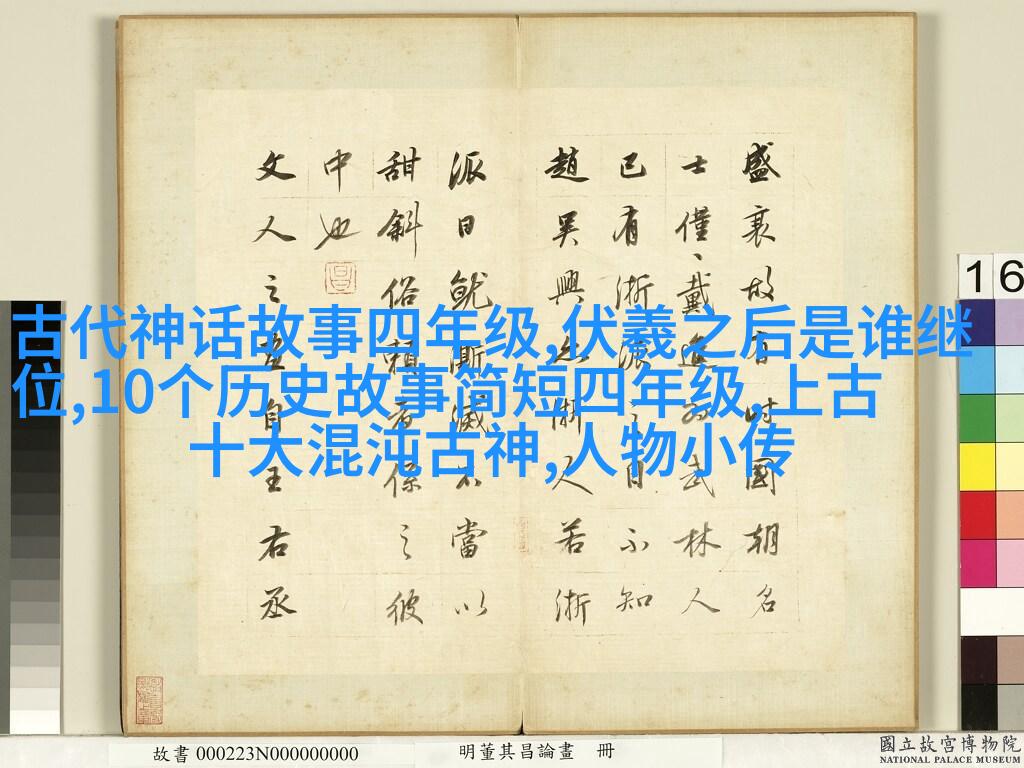 古代神话故事四年级,伏羲之后是谁继
位,10个历史故事简短四年级,上古
十大混沌古神,人物小传
盛衰故有時國朝名
士僅戴進為武林人
已有浙派之目不知
趙吳興亦浙人若浙
派日就澌滅不當以
甜斜俗賴者係之彼
中也
文人之畫自王右丞
16
故書 000223N000000000
明董其昌論畫 冊
國立故宮博物院
NATIONAL PALACE MUSEUM